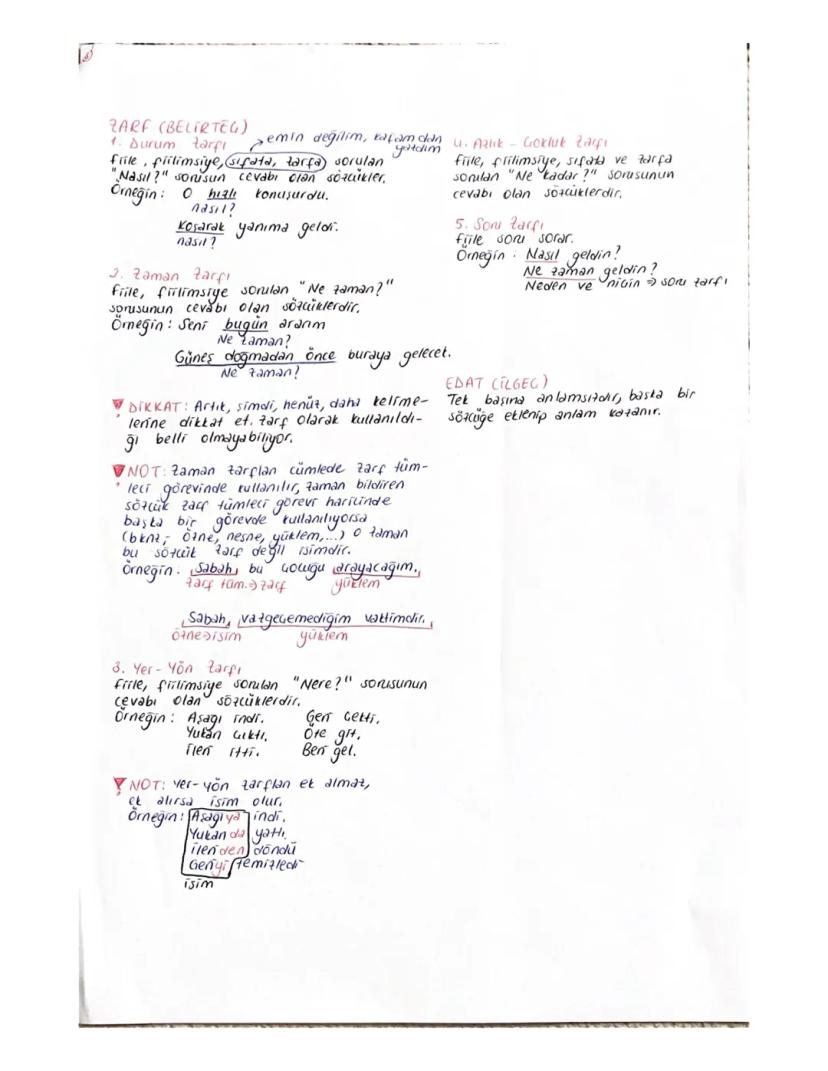 ZARF (BELİRTEÇ)
1. Durum Zarfı
→ emin değilim, kafamdan yazdım
fiile, fiilimsiye, (sıfata, zarfa) sorulan
"Nasıl?" sorusun cevabı olan sözcükler.
Örneğin: O hızlı konuşurdu.
nasıl?
Koşarak yanıma geldi.
nasıl?
2. Zaman Zarfı
Fiile, fiilimsiye sorulan "Ne zaman?"
sorusunun cevabı olan sözcüklerdir.
Örneğin: Seni bugün ararım
Ne zaman?
Güneş doğmadan önce buraya gelecek.
Ne zaman?
DİKKAT: Artık, şimdi, henüz, daha kelime-
lerine dikkat et. Zarf olarak kullanıldı-
ğı belli olmayabiliyor.
NOT: Zaman zarfları cümlede zarf tüm-
leci görevinde kullanılır, zaman bildiren
sözcük zarf tümleci görevi haricinde
başka bir görevde kullanılıyorsa
(bknz; özne, nesne, yüklem,...) o zaman
bu sözcük zarf değil isimdir.
Örneğin: Sabah, bu çocuğu arayacağım.
zarf tüm.⇒zarf yüklem
Sabah, vazgeçemediğim vaktimdir.
özne⇒isim yüklem
3. Yer-Yön Zarfı
Fiile, fiilimsiye sorulan "Nere?" sorusunun
cevabı olan sözcüklerdir.
Örneğin: Aşağı indi. Geri çekti.
Yukarı çıktı. Öte git.
İleri itti. Beri gel.
NOT: Yer-yön zarfları ek almaz,
ek alırsa isim olur.
Örneğin: Aşağıya indi.
Yukarıda yattı.
İleriden döndü
Geriyi temizledi
isim
4. Azlık - Çokluk Zarfı
Fiile, fiilimsiye, sıfata ve zarfa
sorulan "Ne kadar?" sorusunun
cevabı olan sözcüklerdir.
5. Soru Zarfı
Fiile soru sorar.
Örneğin: Nasıl geldin?
Ne zaman geldin?
Neden ve niçin ⇒ soru zarfı
EDAT (İLGEÇ)
Tek başına anlamsızdır, başka bir
sözcüğe eklenip anlam kazanır.